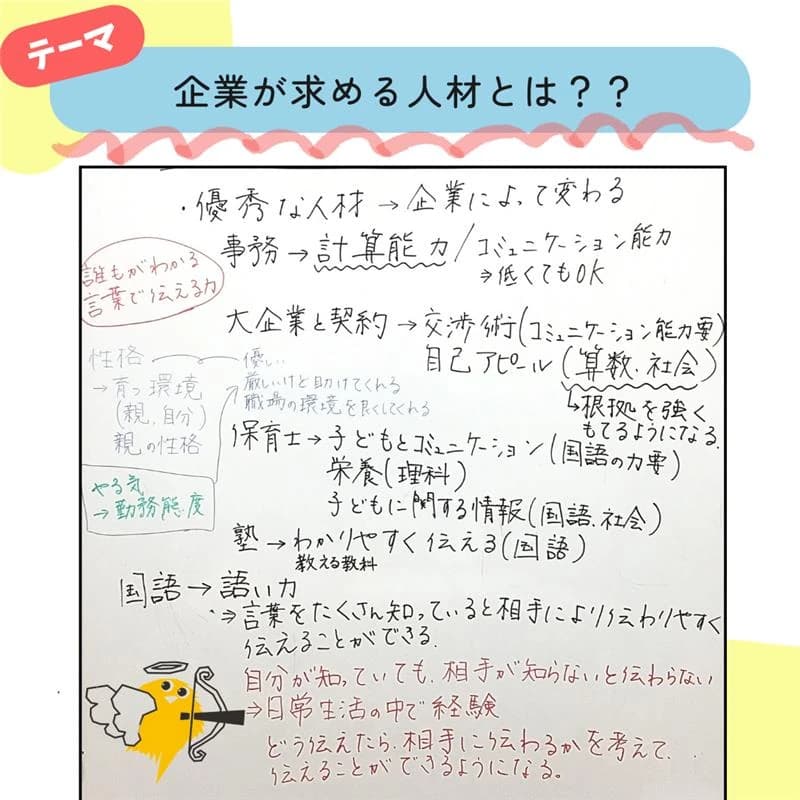 テーマ
企業が求める人材とは？？
・優秀な人材→企業によって変わる
事務→計算能力/コミュニケーション能力
⇒低くてもOK
誰もがわかる
言葉で伝える力
大企業と契約→交渉術(コミュニケーション能力要)
自己アピール(算数、社会)
↳根拠を強く
もてるようになる。
性格
→育つ環境
(親、自分)
親の性格
優しい
厳しいけど助けてくれる
職場の環境を良くしてくれる
やる気
→勤務態度
保育士→子どもとコミュニケーション(国語の力要)
栄養(理科)
子どもに関する情報(国語、社会)
塾→わかりやすく伝える(国語)
教える教科
国語→語い力
⇒言葉をたくさん知っていると相手により伝わりやすく
伝えることができる。
自分が知っていても、相手が知らないと伝わらない
⇒日常生活の中で経験
どう伝えたら、相手に伝わるかを考えて、
伝えることができるようになる。